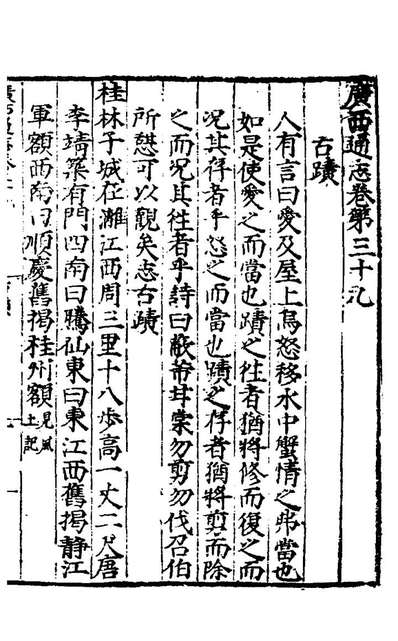 廣西通志卷第三十九
古蹟
人有言曰愛及屋上烏怒移水中蟹情之弗當也
如是使愛之而當也蹟之往者猶將修而復之而
况其存者乎怒之而當也蹟之存者猶將剪而除
之而况其往者乎詩曰蔽芾甘棠勿剪勿伐召伯
所憇可以觀矣志古蹟
桂林子城在灕江西周三里十八步高一丈二尺唐
李靖築有門四南曰騰仙東曰東江西舊揭静江
軍額西南曰順慶舊揭桂州額見風
土記